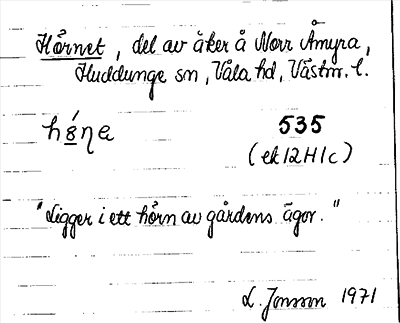 Hårnet, del av åker å Norr Åmyra,
Huddunge sn, Våla hd, Västm. l.
535
(ek 12H1c)
"Ligger i ett hörn av gårdens ägor."
L. Jonsson 1971